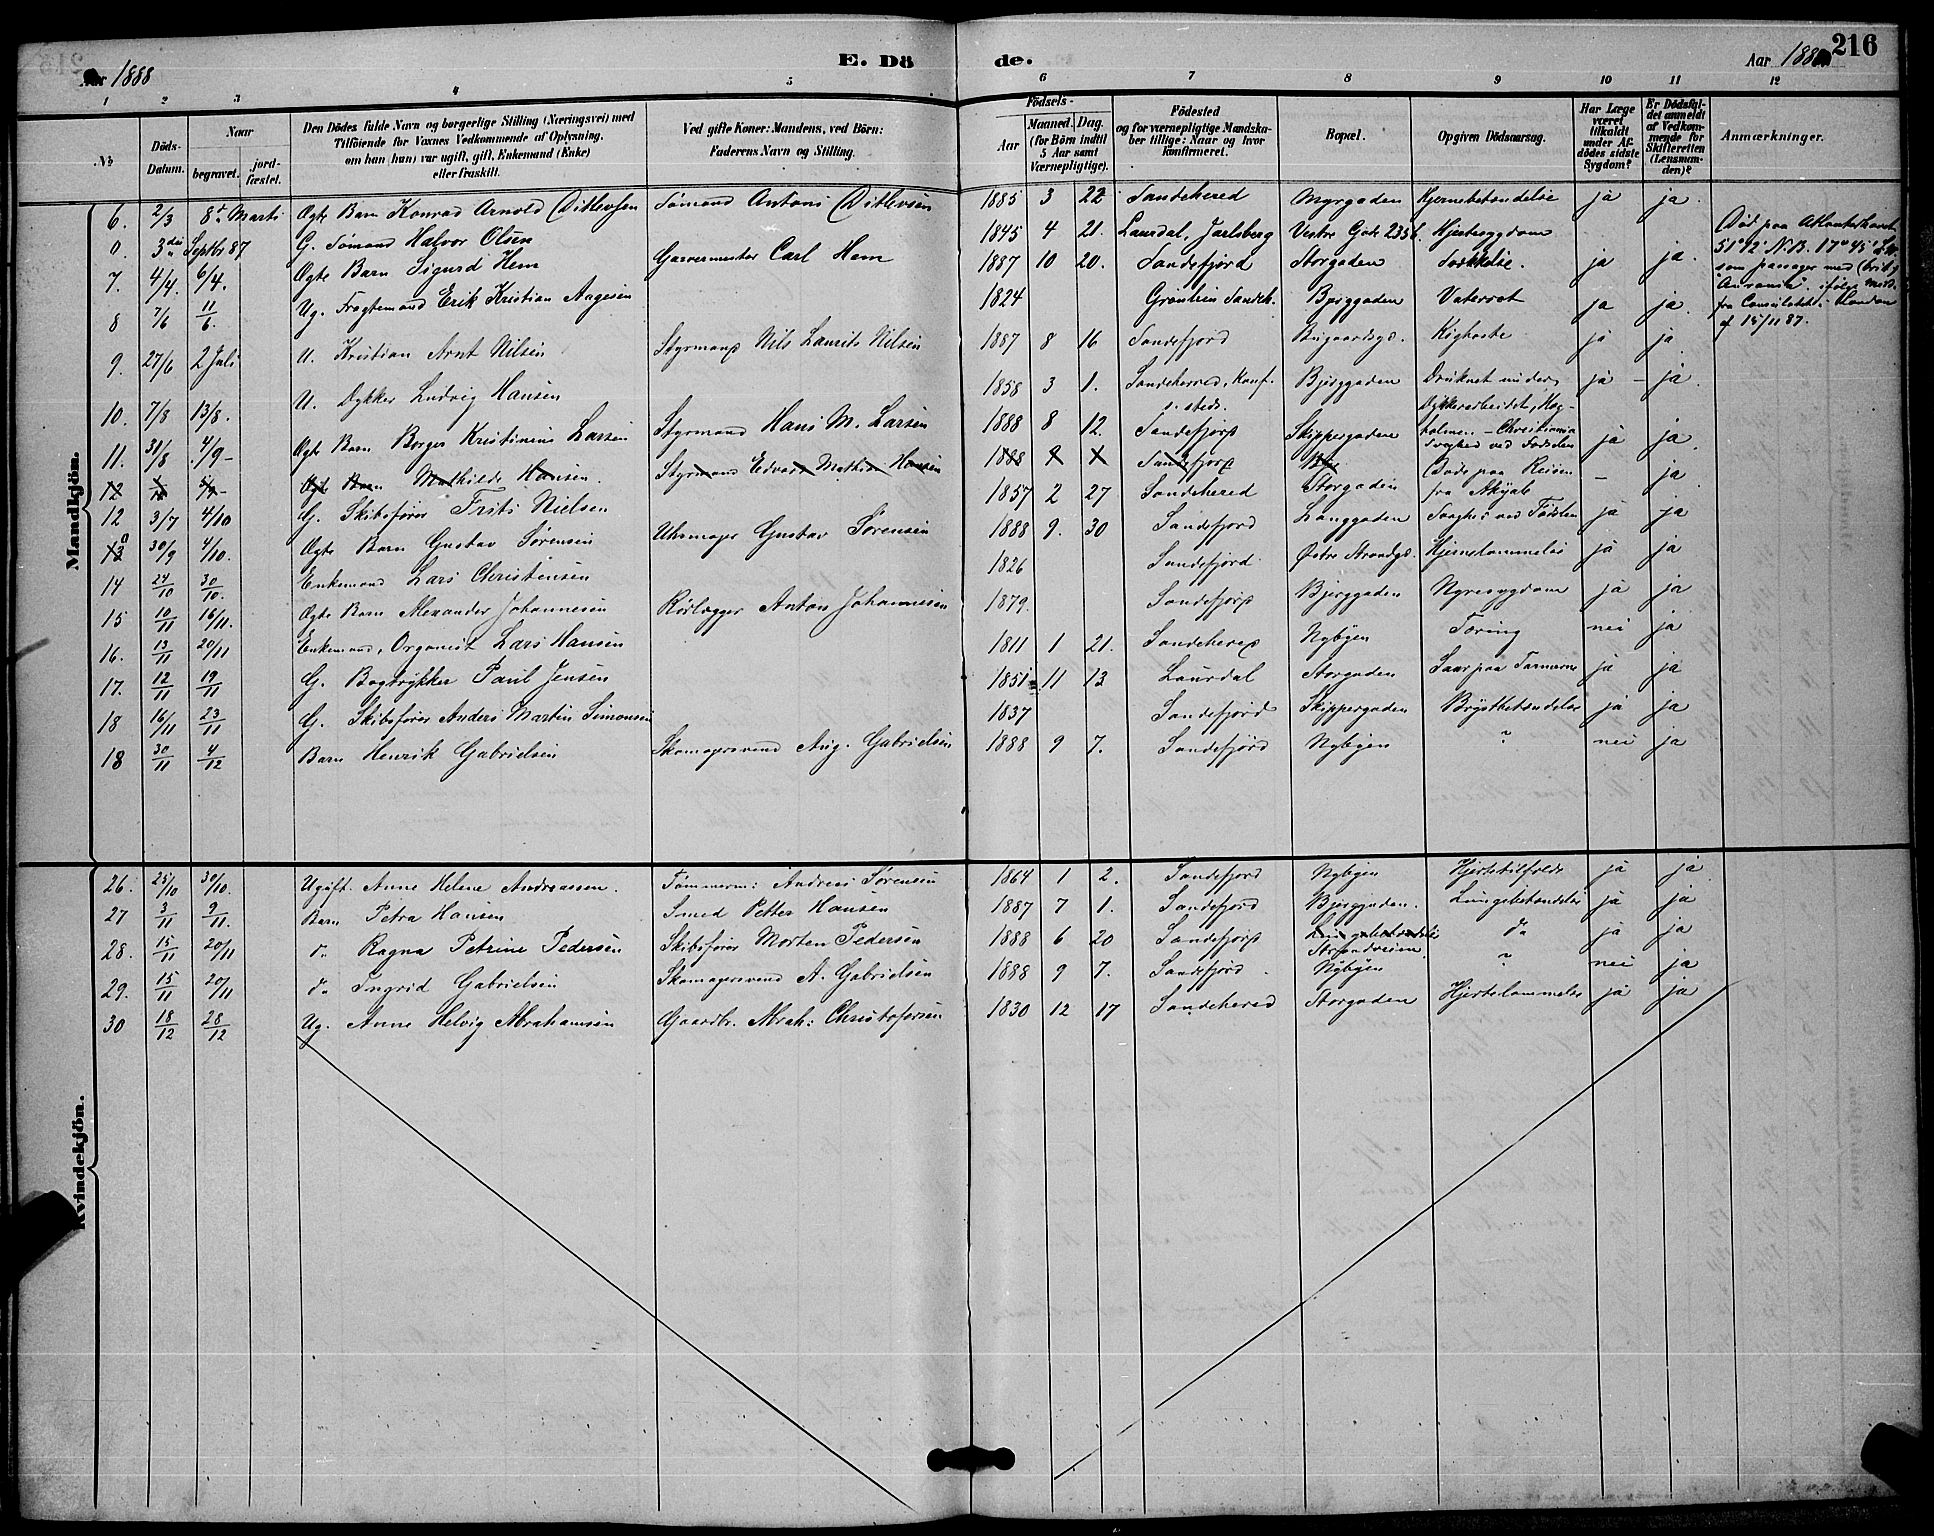 216
Aar 1888
E. Dö
de.
Aar 188
1 2 3 4 5 6 7 8 9 10 11 12
No
Döds-
Datum.
Naar
begravet.
jord-
fæstet.
Den Dödes fulde Navn og borgerlige Stilling (Næringsvei) med
Tilföiende for Voxnes Vedkommende af Oplysning,
om han (hun) var ugift, gift, Enkemand (Enke)
eller fraskilt.
Ved gifte Koner: Mandens, ved Börn:
Faderens Navn og Stilling.
Födsels-
Aar
Maaned.
Dag.
(for Börn indtil
5 Aar samt
Værnepligtige).
Födested
og for værnepligtige Mandska-
ber tillige: Naar og hvor
konfirmeret.
Bopæl.
Opgiven Dödsaarsag.
Har Læge
været
tilkaldt
under Af-
dödes sidste
Sygdom?
Er Dödsfal-
det anmeldt
af Vedkom-
mende for
Skifteretten
(Lensman-
den)?
Anmærkninger.
Mandkjön.
6. 2/3 8de Marts Ægte Barn Konrad Arnold Ditlevsen Sømand Antoni Ditlevsen 1885 3 22 Sandehered Myrgaden Hjernebetændelse ja ja.
0. 3die Septbr 87 G. Sømand Halvor Olsen 1845 4 21. Laurdal, Jarlsberg Vestre Gade 235b. Hjertesygdom
Død paa Atlanterhavet
51° 12' N.B. 17° 45'
som passager med
ifølge Meld.
fra Consulatet i London
af 15/11 87.
7. 4/4. 6/4. Ægte Barn Sigurd Hem Garvermester Carl Hem 1887 10 20. Sandefjord Storgaden ja ja.
8 7/6 11/6. Ug. Fragtemand Erik Kristian Aagesen 1824 Sandeh. Bjerggaden Vatersot ja ja.
9. 27/6 2 Juli U. Kristian Arnt Nilsen Styrmand Nils Laurits Nilsen 1887 8 16 Sandefjord Bugaardsgd. Kighoste ja ja.
10. 7/8 13/8. U. Dykker Ludvig Hansen 1858 3 1. Sandehered, Konf. s. steds. Bjerggaden Druknet under
Dykkerarbeidet,
holmen - Christiania ja - ja.
11. 31/8 4/9- Ægte Barn Borger Kristinius Larsen Styrmand Hans M. Larsen 1888 8 12. Sandefjord Skippergaden Svaghed ved Fødselen ja ja.
12 Ægte Barn Mathilde Hansen. Styrmand Edvard Mathias Hansen 1888 Sandefjord
12 3/7 4/10 G. Skibsfører Frits Nielsen 1857 2 27 Sandehered Storgaden Døde paa Reisen
fra Akyab - ja
13 30/9 4/10. Ægte Barn Gustav Sørensen Uhrmager Gustav Sørensen 1888 9. 30 Sandefjord Langgaden Svaghed ved Fødslen ja ja
14 24/10 30/10. Enkemand Lars Christensen 1826 Sandefjord Østre Strandgd. Hjernelammelse ja ja
15 10/11 16/11. Ægte Barn Alexander Johannesen Rørlægger Anton Johannesen 1879. Sandefjord Bjerggaden Nyresygdom ja ja
16. 13/11 20/11 Enkemand, Organist Lars Hansen 1811 1 21. Sandehered Nybyen Tæring nei ja
17. 12/11 19/11 G. Bogtrykker Paul Jensen 1851 11 13 Laurdal Storgaden Saar paa Tarmerne ja ja
18 16/11 23/11 G. Skibsfører Anders Martin Simonsen 1837 Sandefjord Skippergaden Brystbetændelse ja ja
18 30/11 4/12 Barn Henrik Gabrielsen Skomagersvend Aug. Gabrielsen 1888 9 7. Sandefjord Nybyen ? nei ja
Kvindekjön.
26. 25/10 30/10. Ugift. Anne Helene Andreassen. Tømmerm: Andreas Sørensen 1864 1 2. Sandefjord Nybyen Hjertetilfælde ja ja.
27 3/11 9/11. Barn Petra Hansen Smed Petter Hansen 1887 7 1. Sandefjord Bjerggaden. Lungebetændelse ja ja
28. 15/11 20/11 do Ragna Petrine Pedersen Skibsfører Morten Pedersen 1888 6 20 Sandefjord Lungebetændelse Strandveien do ja ja
29. 15/11 20/11 do Ingrid Gabrielsen Skomagersvend A. Gabrielsen 1888 9 7. Sandefjord. Nybyen ? nei ja
30 18/12 28/12 Ug. Anne Helvig Abrahamsen Gaardbr. Abrah: Christofersen 1830 12 17 Sandehered Storgaden Hjertelammelse ja ja